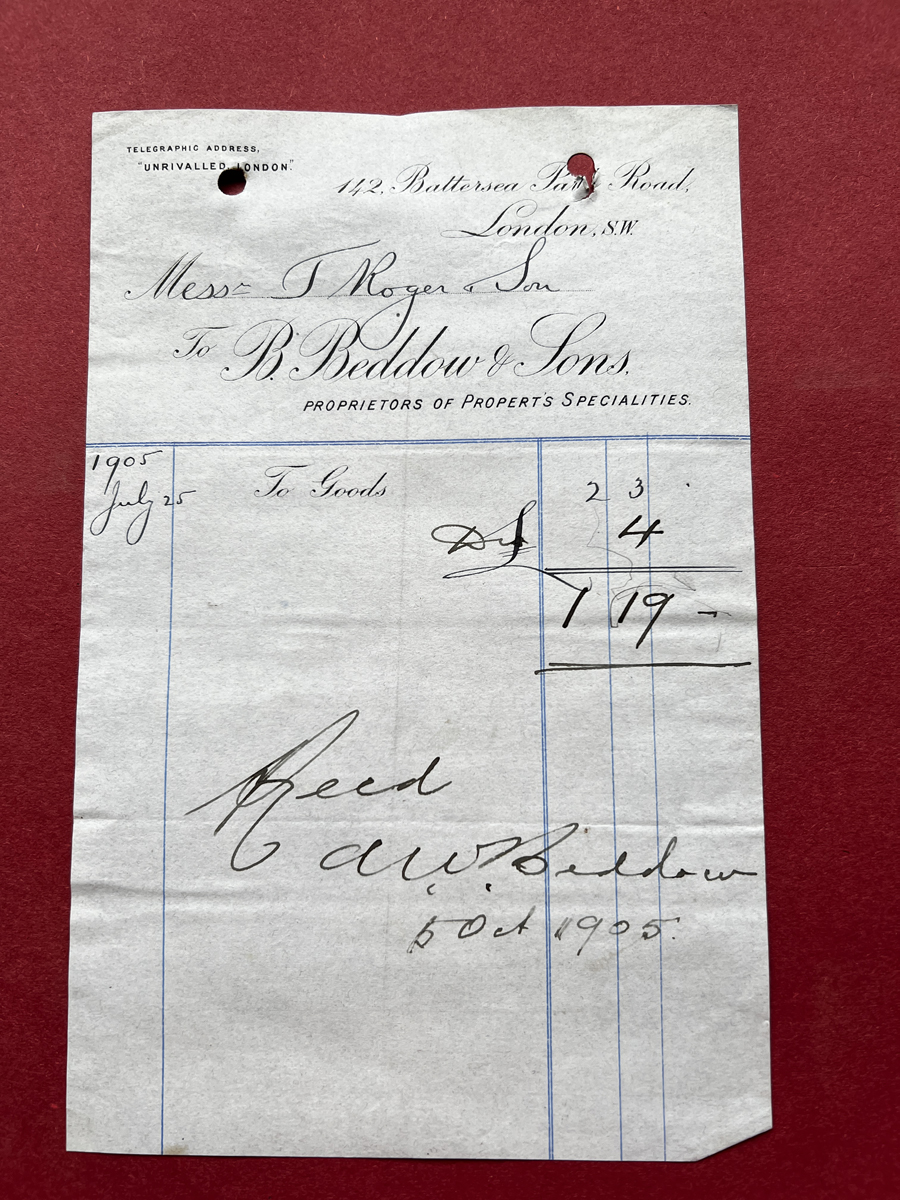 TELEGRAPHIC ADDRESS,
"UNRIVALLED, LONDON."
142, Battersea Park Road,
London, S.W.
Messrs T Roger & Son
To B. Beddow & Sons,
PROPRIETORS OF PROPERT'S SPECIALITIES.
1905
July 25 To Goods 2 3
Dis 4
1 19 -
Recd
A.W. Beddow
5 Oct 1905.